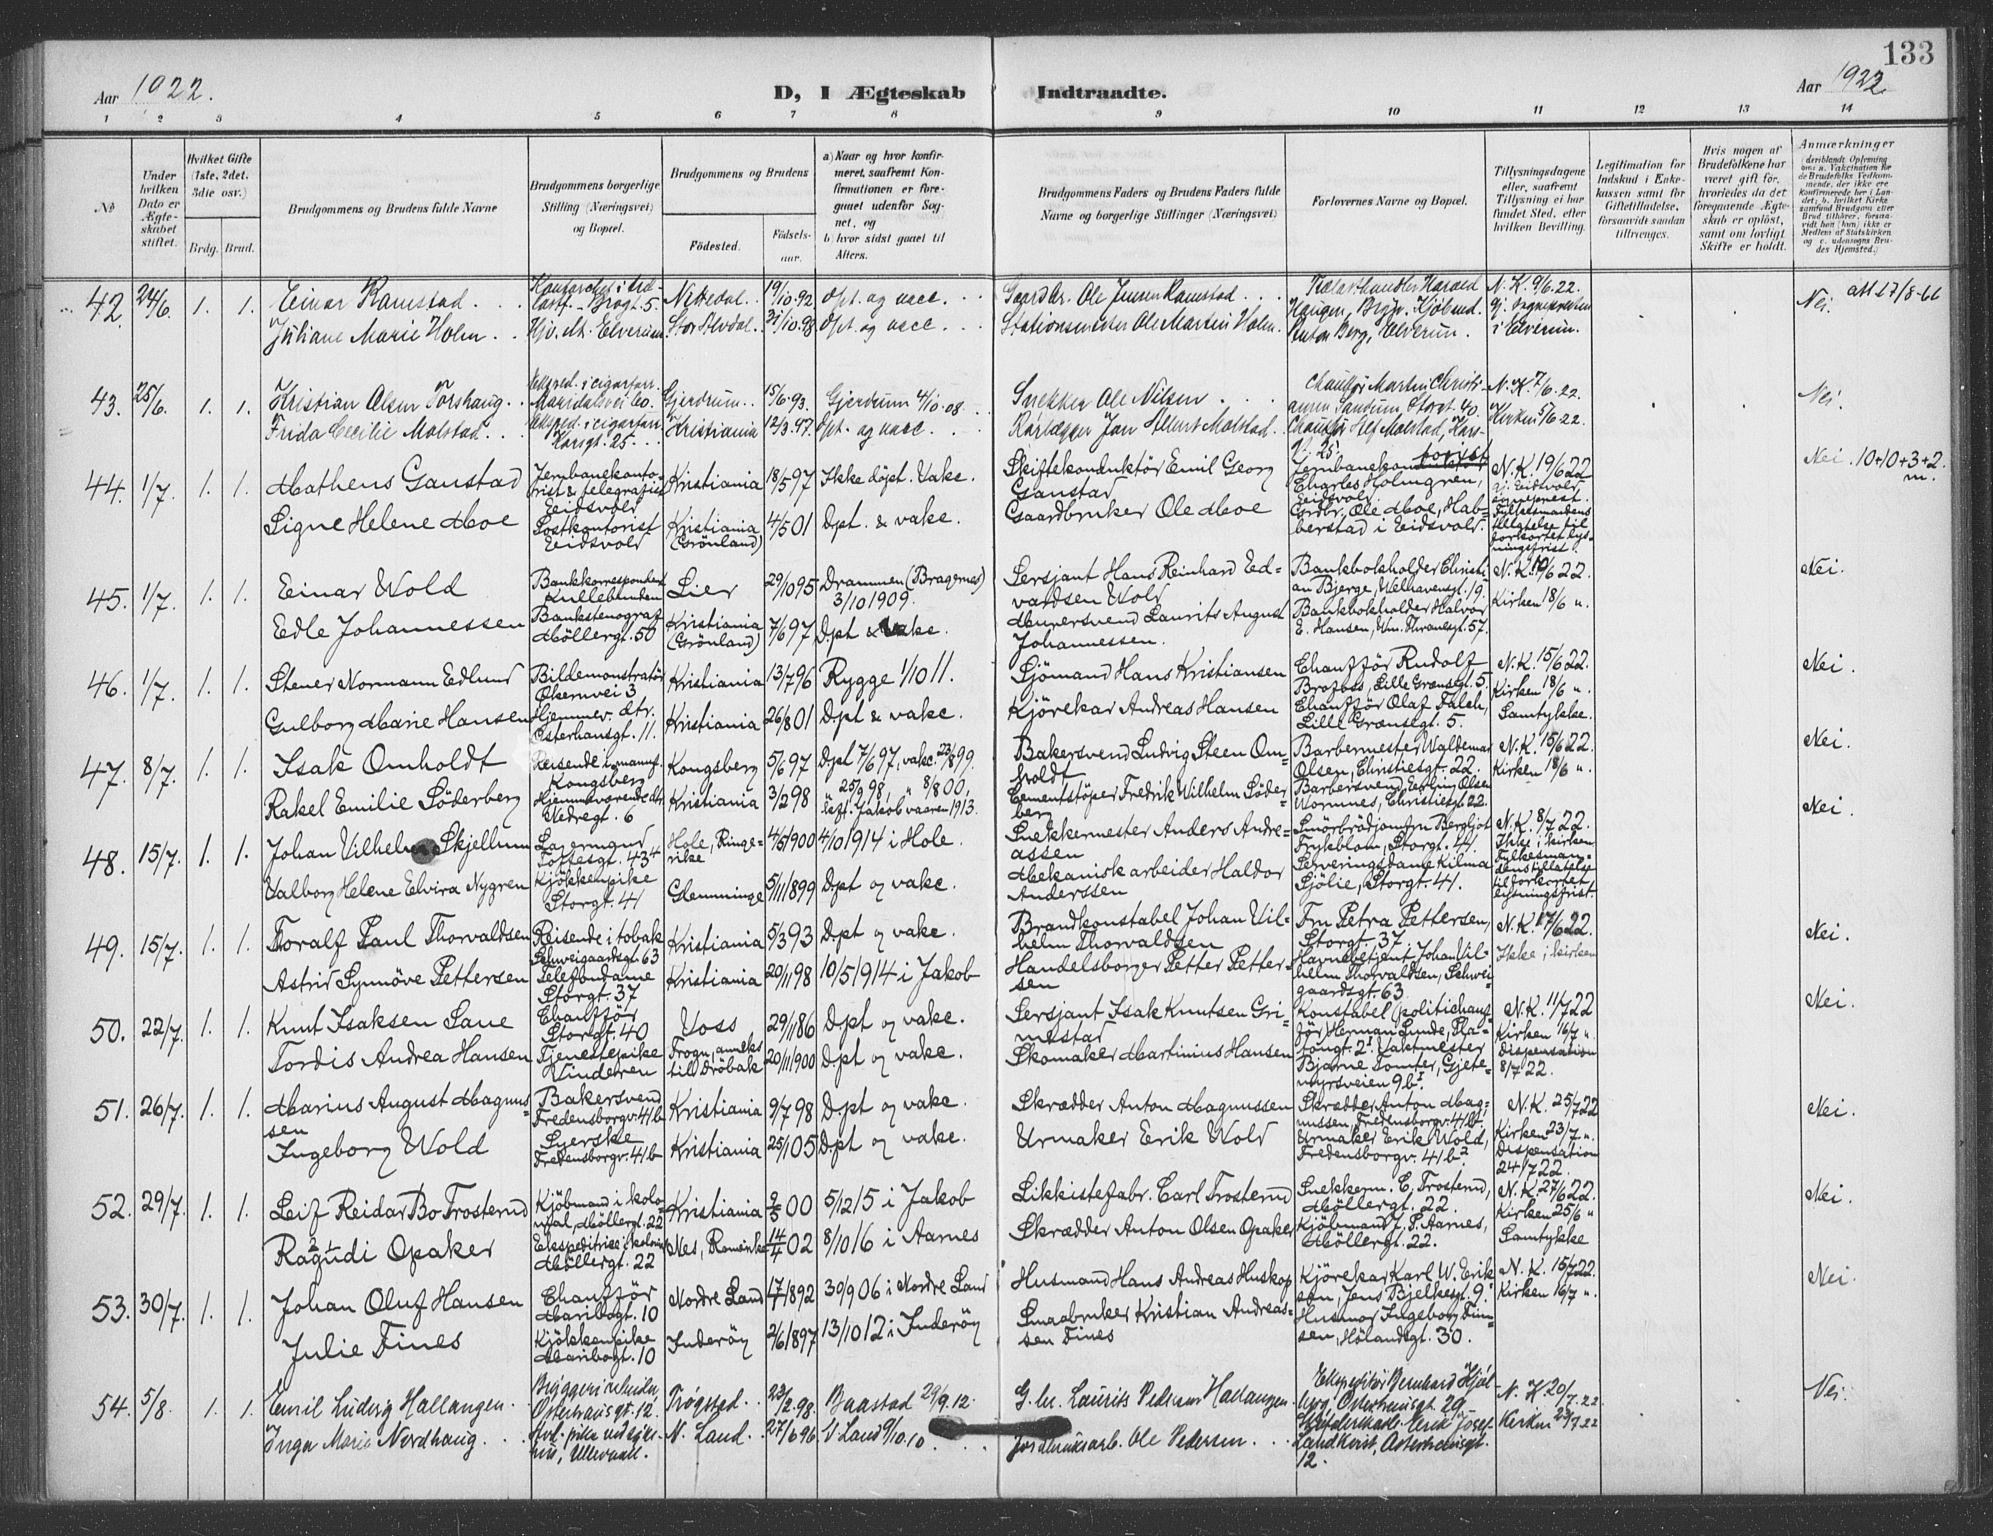 133
Aar 1922.
D, I Ægteskab Indtraadte.
Aar 1922
1 2 3 4 5 6 7 8 9 10 11 12 13 14
№
Under hvilken Dato er Ægteskabet stiftet.
Hvilket Gifte (1ste, 2det, 3die osv.)
Brdg. Brud.
Brudgommens og Brudens fulde Navne
Brudgommens borgerlige Stilling (Næringsvei) og Bopæl.
Brudgommens og Brudens
Fødested. Fødselsaar.
a) Naar og hvor konfirmeret, saafremt Konfirmationen er foregaaet udenfor Sognet, og
b) hvor sidst gaaet til Alters.
Brudgommens Faders og Brudens Faders fulde Navne og borgerlige Stillinger (Næringsvei)
Forlovernes Navne og Bopæl.
Tillysningsdagene eller, saafremt Tillysning ei har fundet Sted, efter hvilken Bevilling.
Legitimation for Indskud i Enkekassen samt for Giftetilladelse, forsaavidt saadan tiltrænges.
Hvis nogen af Brudefolkene har været gift før, hvorledes da det foregaaende Ægteskab er opløst, samt om lovligt Skifte er holdt.
Anmærkninger
42. 24/6. 1. 1. Einar Ramstad Nittedal. 19/10.92 Døpt. og vacc. Gaardbr. Ole Jensen Ramstad N. K. 9/6.22. Nei.
Juliane Marie Holm Stor-Elvdal. 21/10.98 Døpt. og vacc. Stationsmester Ole Martin Holm. Anton Berg, Elverum. i Elverum.
43. 25/6. 1. 1. Kristian Olsen Torshaug Gjerdrum. 15/6.93. Gjerdrum 4/10.08. Snekker Ole Nilsen N. K. 7/6.22. Nei.
Frida Cecilie Molstad Kristiania 12/3.97. Døpt. og vacc. Kirken 5/6.22.
44. 1/7. 1. 1. Mathens Ganstad Jernbanekontorist & telegrafist Eidsvold Kristiania 18/5 97 Ikke döpt. Vakc. Skiftekonduktör Emil Georg Ganstad Charles Holmgren, Eidsvold. N. K. 19/6 22 Nei. 10+10+3+2. m.
Signe Helene Moe Postkontorist Eidsvold Kristiania (Grönland) 4/5 01 Döpt. & vakc. Gaardbruker Ole Moe Grdbr. Ole Moe, Habberstad i Eidsvold. Fylkesmandens tilladelse til forkortet lysningsfrist.
45. 1/7. 1. 1. Einar Wold Lier 29/10 95 Drammen (Bragernes) 3/10 1909. Sersjant Hans Reinhard Edvardsen Wold Bankbokholder Christian Bjerge, Welhavensgt. 19. N. K. 10/6 22. Nei.
Edle Johannessen Bankstenograf Möllergt. 50 Kristiania (Grönland) 7/6 97 Döpt & vakc. Murersvend Laurits August Johannessen. Bankbokholder Halvor E. Hansen, Wm. Thranesgt. 57. Kirken 18/6 ".
46. 1/7. 1. 1. Stener Normann Edlund Bildemonstratör Økernvei 3 Kristiania 13/7 96 Rygge 1/10 11. Sjömand Hans Kristiansen Chaufför Rudolf Lille Grænsegt. 5. N. K. 15/6 22. Nei.
Gulborg Marie Hansen Hjemmev. dtr. Osterhausgt. 11. Kristiania 26/8 01 Döpt & vakc. Kjörekar Andreas Hansen Chaufför Olaf Falch, Lille Grænsegt. 5. Kirken 18/6 ". Samtykke.
47. 8/7. 1. 1. Isak Omholdt Reisende i manuf. Kongsberg Kongsberg 5/6 97 Döpt 7/6 97, vakc. 23/8 99. Bakersvend Ludvig Steen Omholdt Barbermester Waldemar Olsen, Christiesgt. 22. N. K. 15/6 22. Nei.
Rakel Emilie Söderberg Hjemmeværende dtr. Nedregt. 6 Kristiania 3/2 98 " 25/9 98, " 8/8 00, konf. Jakob vaaren 1913. Cementstöper Fredrik Wilhelm Söderberg Barbersvend Erling Olsen Wormnes, Christiesgt. 22. Kirken 18/6 ".
48. 15/7. 1. 1. Johan Vilhelm Skjellum Lagermand Toftesgt. 43 4 Hole, Ringerike 4/5 1900 4/10 1914 i Hole. Snekkermester Anders Andreassen Smörbrödjomfru Bergljot Frykblom, Storgt. 41. N. K. 8/7 22. Nei.
Valborg Helene Elvira Nygren Kjökkenpike Storgt. 41 Glemminge 5/11 1899 Döpt og vakc. Mekanisk arbeider Haldor Anderssen Serveringsdame Kilma Sjölie, Storgt. 41. Ikke i kirken Fylkesmandens tilladelse til forkortet lysningsfrist.
49. 15/7. 1. 1. Toralf Paul Thorvaldsen Reisende i tobak Schweigaardsgt. 63 Kristiania 5/3 93 Döpt og vakc. Brandkonstabel Johan Vilhelm Thorvaldsen Fru Petra Pettersen, Storgt. 37 N. K. 17/6 22. Nei.
Astrid Synnöve Pettersen Telefondame Storgt. 37 Kristiania 20/11 98 10/5 1914 i Jakob Handelsborger Petter Pettersen Havnebetjent Johan Vilhelm Thorvaldsen, Schweigaardsgt. 63 Ikke i kirken
50. 22/7. 1. 1. Knut Isaksen Sane Chaufför Storgt. 40 Voss 29/11 86 Döpt og vakc. Sersjant Isak Knutsen Grimestad Konstabel (politichauffør) Herman Lunde, Platougt. 2 I N. K. 11/7 22 Nei.
Tordis Andrea Hansen Tjenestepike Vinderen Frogn, anneks till Dröbak 20/11 1900 Döpt og vakc. Skomaker Martinius Hansen Vaktmester Bjarne Tomter, Gjetemyrsveien 9 b I Kirken 16/7 " Dispensation 8/7 22.
51. 26/7. 1. 1. Marius August Magnussen Bakersvend Fredensborgv. 41 b Kristiania 9/7 98 Döpt og vakc. Skrædder Anton Magnussen Skrædder Anton Magnussen, Fredensborgv. 41 b. N. K. 25/7 22 Nei.
Ingeborg Wold Syerske Fredensborgv. 41 b Kristiania 25/1 05 Döpt og vakc. Urmaker Erik Wold Urmaker Erik Wold, Fredensborgv. 41 b 2 Kirken 23/7 ". Dispensation 24/7 22.
52. 29/7. 1. 1. Leif Reidar Bo Trosterud Kjöbmand i kolonial, Möllergt. 22 Kristiania 9/5 00 5/12 15 i Jakob Likkistefabr. Carl Trosterud Snekkerm. C. Trosterud, Möllergt. 22. N. K. 27/6 22. Nei.
Ragudi Opaker Ekspeditrise i kolonial Möllergt. 22 Nes, Romerike 14/4 02 8/10 16 i Aarnes Skrædder Anton Olsen Opaker Kjöbmand J. P. Aarnes, Möllergt. 22. Kirken 25/6 " Samtykke
53. 30/7. 1. 1. Johan Oluf Hansen Chaufför Maribogt. 10 Nordre Land 17/1 1892 30/9 06 i Nordre Land Husmand Hans Andreas Huskop Kjörekar Karl W. Eriksen, Jens Bjelkesgt. 9. N. K. 15/7 22. Nei.
Julie Fines Kjökkenpike Maribogt. 10 Inderöy 2/6 1897 13/10 12 i Inderöy Smaabruker Kristian Andreassen Fines Husmor Ingeborg Finsen, Hölandsgt. 30. Kirken 16/7 ".
54. 5/8. 1. 1. Emil Ludvig Hallangen Osterhausgt. 12. Trøgstad. 23/2.98. Baastad 29/9.12. G. br. Laurits Pedersen Hallangen Ekspeditør Bernhard Hjelberg, Osterhausgt. 29 N. K. 20/7.22 Nei.
Inga Marie Nordhaug Ullevaal. N. Land. 27/6 96 V. Land 9/10.10 Jordbruksarb. Ole Pedersen. Osterhausgt. 12. Kirken 23/7 22